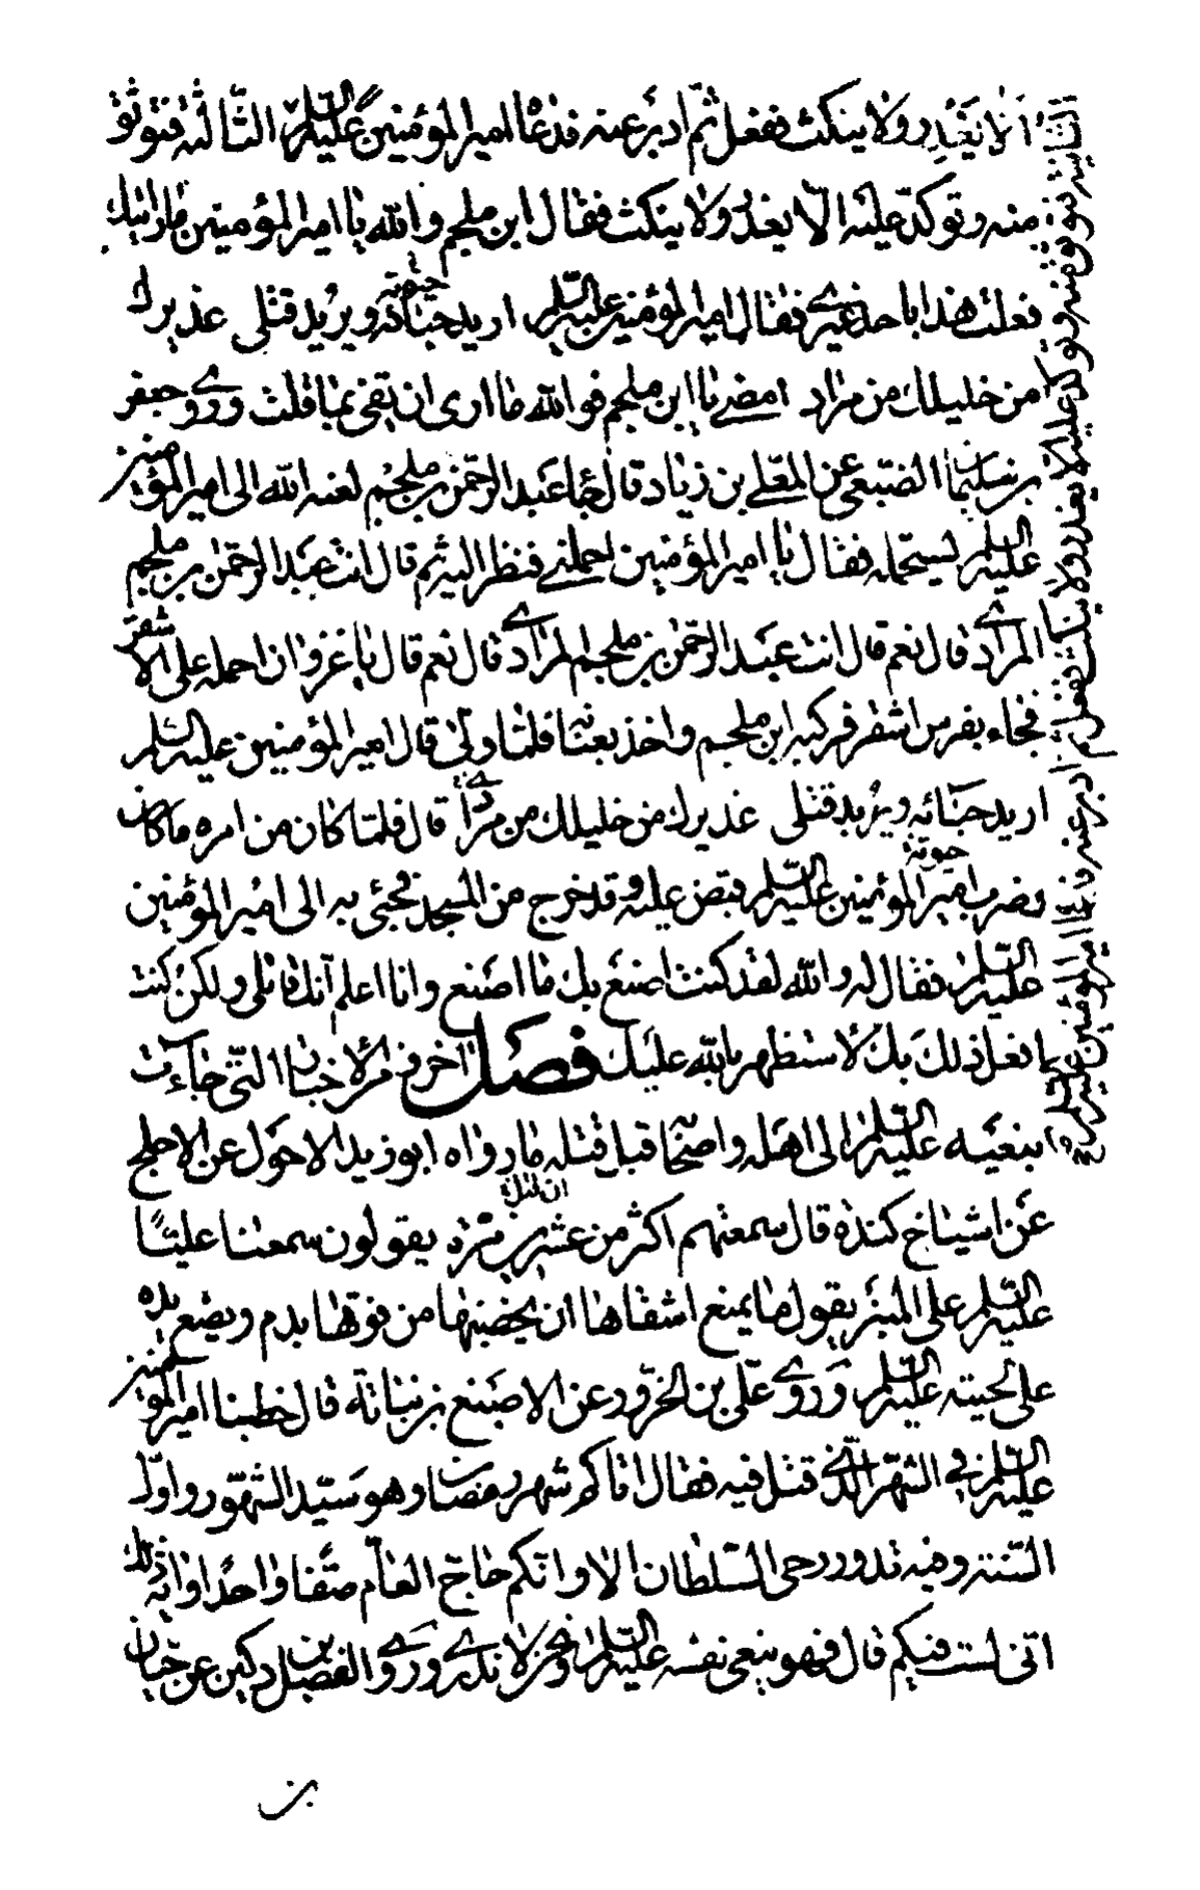 الا يغدر ولا ينكث ففعل ثم ادبر عنه فدعاه امير المؤمنين عليه السلام الثالثة فتوثق
منه وتوكد عليه الا يغدر ولا ينكث فقال ابن ملجم والله يا امير المؤمنين ما رايتك
فعلت هذا باحد غيرى فقال امير المؤمنين عليه السلم اريد حباءه ويريد قتلى عذيرك
حبوته
من خليلك من مراد امض يا ابن ملجم فوالله ما ارى ان تفى بما قلت وروى جعفر
بن سليمان الضبعى عن المعلى بن زياد قال جاء عبد الرحمن بن ملجم لعنه الله الى امير المؤمنين
عليه السلم يستحمله فقال يا امير المؤمنين احملنى فنظر اليه ثم قال انت عبد الرحمن بن ملجم
المرادى قال نعم قال انت عبد الرحمن بن ملجم المرادى قال نعم قال يا غزوان احمله على الاشقر
فجاء بفرس اشقر فركبه ابن ملجم واخذ بعنانه فلما ولى قال امير المؤمنين عليه السلم
اريد حبائه ويريد قتلى عذيرك من خليلك من مرادى قال فلما كان من امره ما كان
حبوته
وضرب امير المؤمنين عليه السلم قبض عليه وقد خرج من المسجد فجئ به الى امير المؤمنين
عليه السلم فقال له والله لقد كنت اصنع بك ما اصنع وانا اعلم انك قاتلى ولكن كنت
افعل ذلك بك لاستظهر بالله عليك فصل اخر ومن الاخبار التى جاءت
بنعيه عليه السلم الى اهله واصحابه قبل قتله ما رواه ابو زيد الاحول عن الاجلح
عن اشياخ كندة قال سمعتهم اكثر من عشرين مرة يقولون سمعنا عليا
عليه السلم على المنبر يقول ما يمنع اشقاها ان يخضبها من فوقها بدم ويضع يده
على لحيته عليه السلم وروى على بن الحزور عن الاصبغ بن نباتة قال خطبنا امير المؤمنين
عليه السلم فى الشهر الذى قتل فيه فقال اتاكم شهر رمضان وهو سيد الشهور واول
السنة وفيه تدور رحى السلطان الا وانكم حاج العام صفا واحدا واية ذلك
انى لست فيكم قال فهو ينعى نفسه عليه السلم ونحن لا ندرى وروى الفضل بن دكين عن حيان
بن
الثانية فتوثق منه وتوكد عليه الا يغدر ولا ينكث ففعل ثم ادبر عنه فدعاه امير المؤمنين عليه السلم